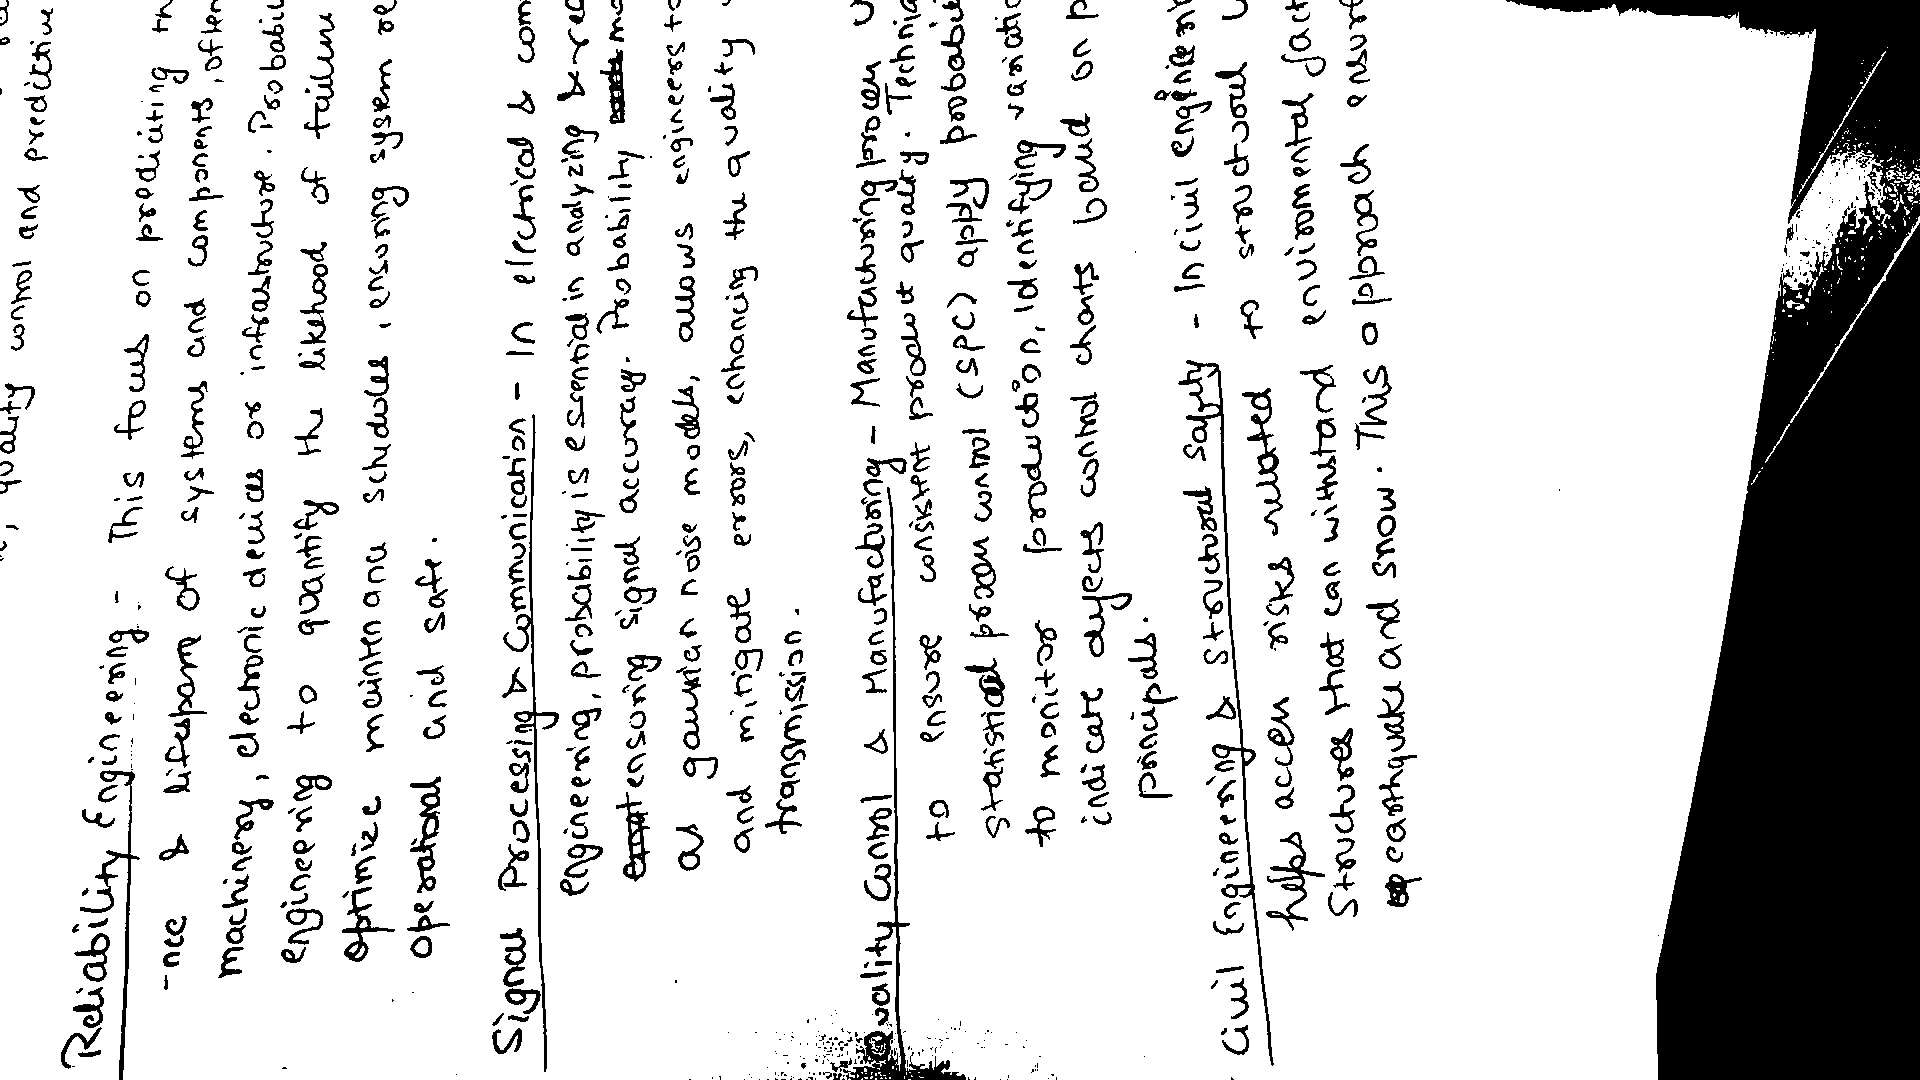 quality control and predictive
Reliability Engineering - This focus on predicting
-nce & lifespam of systems and components, often
machinery, electronic devices or infrastructure. Probabil
engineering to quantify the likehood of failure
optimize maintenance schedules, ensuring system re
operational and safe.
Signal Processing & Communication - In electrical & com
engineering, probability is essential in analyzing &
ensuring signal accuracy. Probability mo
as gaussian noise models, allows engineers to
and mitigate errors, enhancing the quality
transmission.
Quality Control & Manufacturing - Manufacturing process u
to ensure consistent product quality. Techniq
statistical process control (SPC) apply probabil
to monitor production, identifying variatio
indicate deyects control charts based on p
principals.
Civil Engineering & Structural Safety - In civil engineerin
helps accen risks related to structural u
Structures that can withstand environmental fact
earthquake and snow. This approach ensur